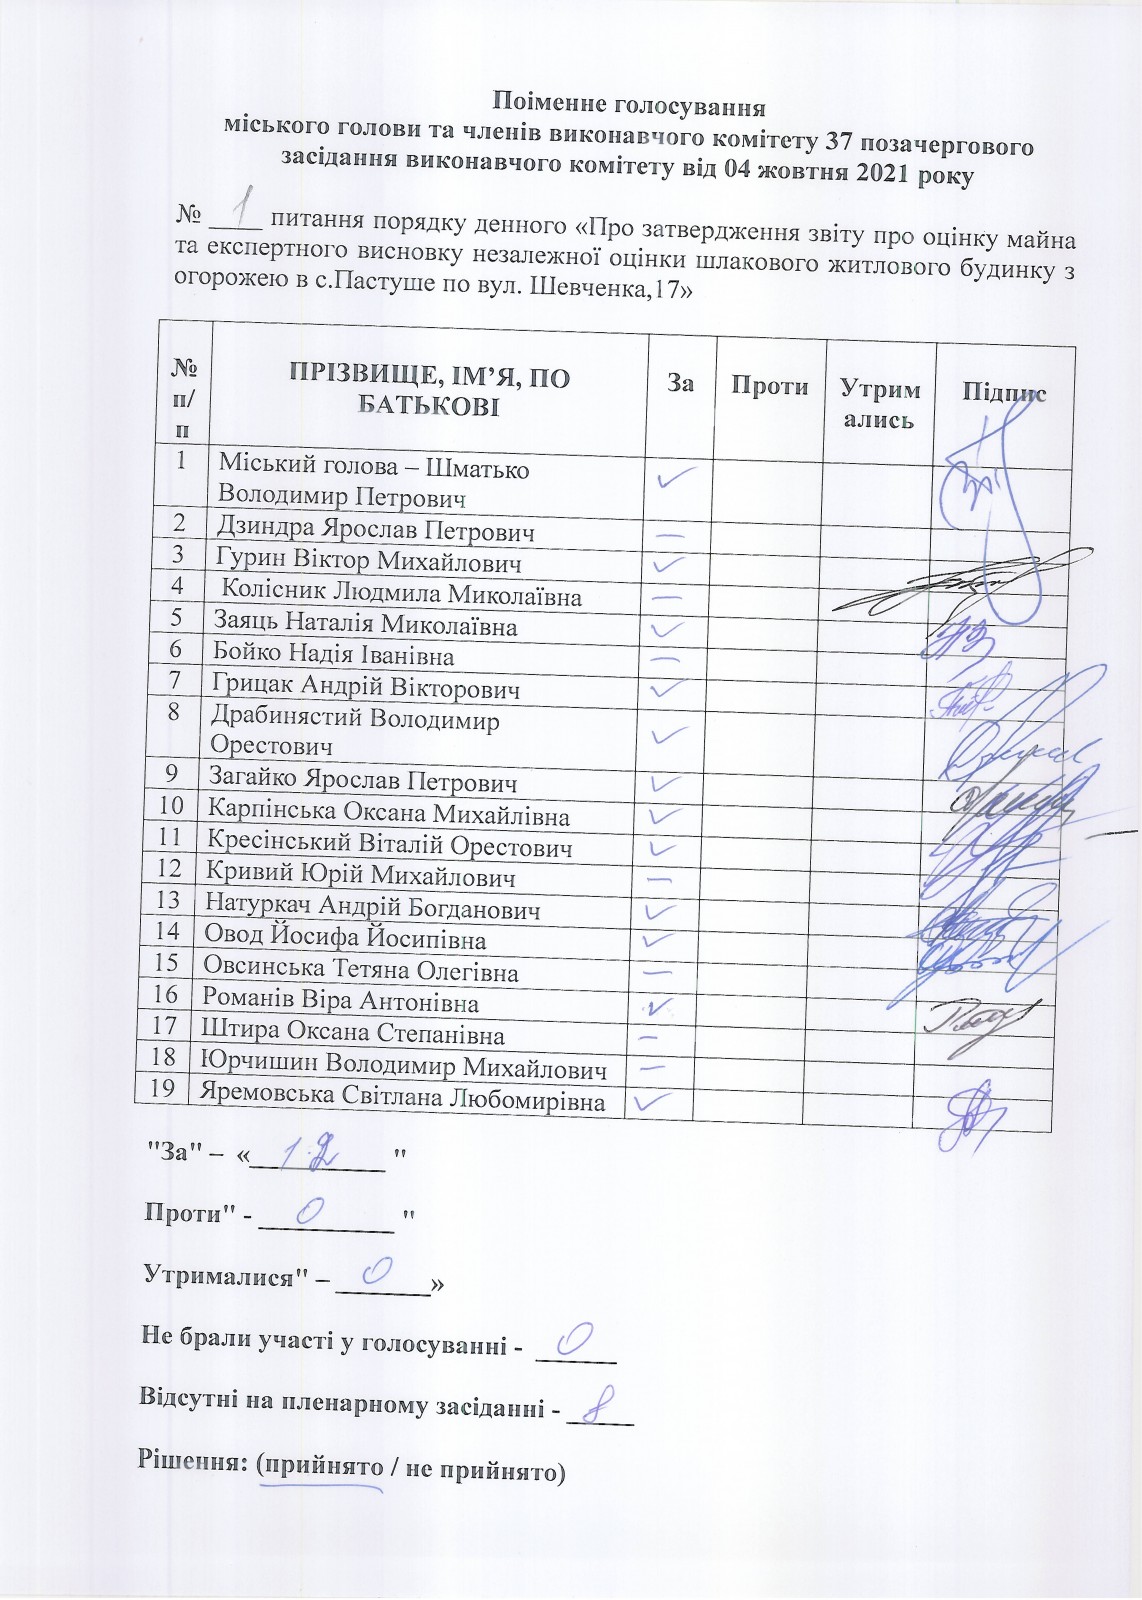 Поіменне голосування
міського голови та членів виконавчого комітету 37 позачергового
засідання виконавчого комітету від 04 жовтня 2021 року
№ 1 питання порядку денного «Про затвердження звіту про оцінку майна
та експертного висновку незалежної оцінки шлакового житлового будинку з
огорожею в с.Пастуше по вул. Шевченка,17»
№ п/п ПРІЗВИЩЕ, ІМ’Я, ПО БАТЬКОВІ За Проти Утримались Підпис
1 Міський голова – Шматько
Володимир Петрович ✓
2 Дзиндра Ярослав Петрович –
3 Гурин Віктор Михайлович ✓
4 Колісник Людмила Миколаївна –
5 Заяць Наталія Миколаївна ✓
6 Бойко Надія Іванівна –
7 Грицак Андрій Вікторович ✓
8 Драбинястий Володимир
Орестович ✓
9 Загайко Ярослав Петрович ✓
10 Карпінська Оксана Михайлівна ✓
11 Кресінський Віталій Орестович ✓
12 Кривий Юрій Михайлович –
13 Натуркач Андрій Богданович ✓
14 Овод Йосифа Йосипівна ✓
15 Овсинська Тетяна Олегівна –
16 Романів Віра Антонівна ✓
17 Штира Оксана Степанівна –
18 Юрчишин Володимир Михайлович –
19 Яремовська Світлана Любомирівна ✓
"За" – « 12 "
Проти" - 0 "
Утрималися" – 0 »
Не брали участі у голосуванні - 0
Відсутні на пленарному засіданні - 8
Рішення: (прийнято / не прийнято)